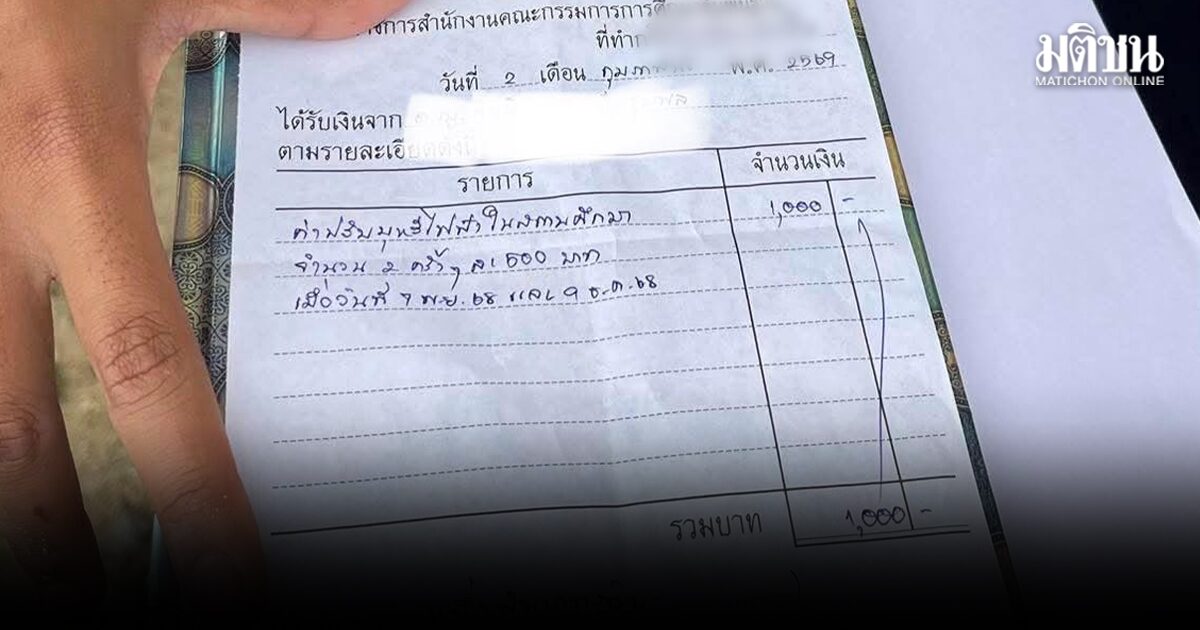 มติชน
MATICHON ONLINE
การสำนักงานคณะกรรมการการศึ
ที่ทำ
วันที่ 2 เดือน กุมภา พ.ศ. 2569
ได้รับเงินจาก
ตามรายละเอียดดังนี้
รายการ จำนวนเงิน
ค่าปรับบุหรี่ไฟฟ้าในสถานศึกษา 1,000 -
จำนวน 2 ครั้งๆ ละ 500 บาท
เมื่อวันที่ 7 พ.ย. 68 และ 9 ธ.ค. 68
รวมบาท 1,000 -